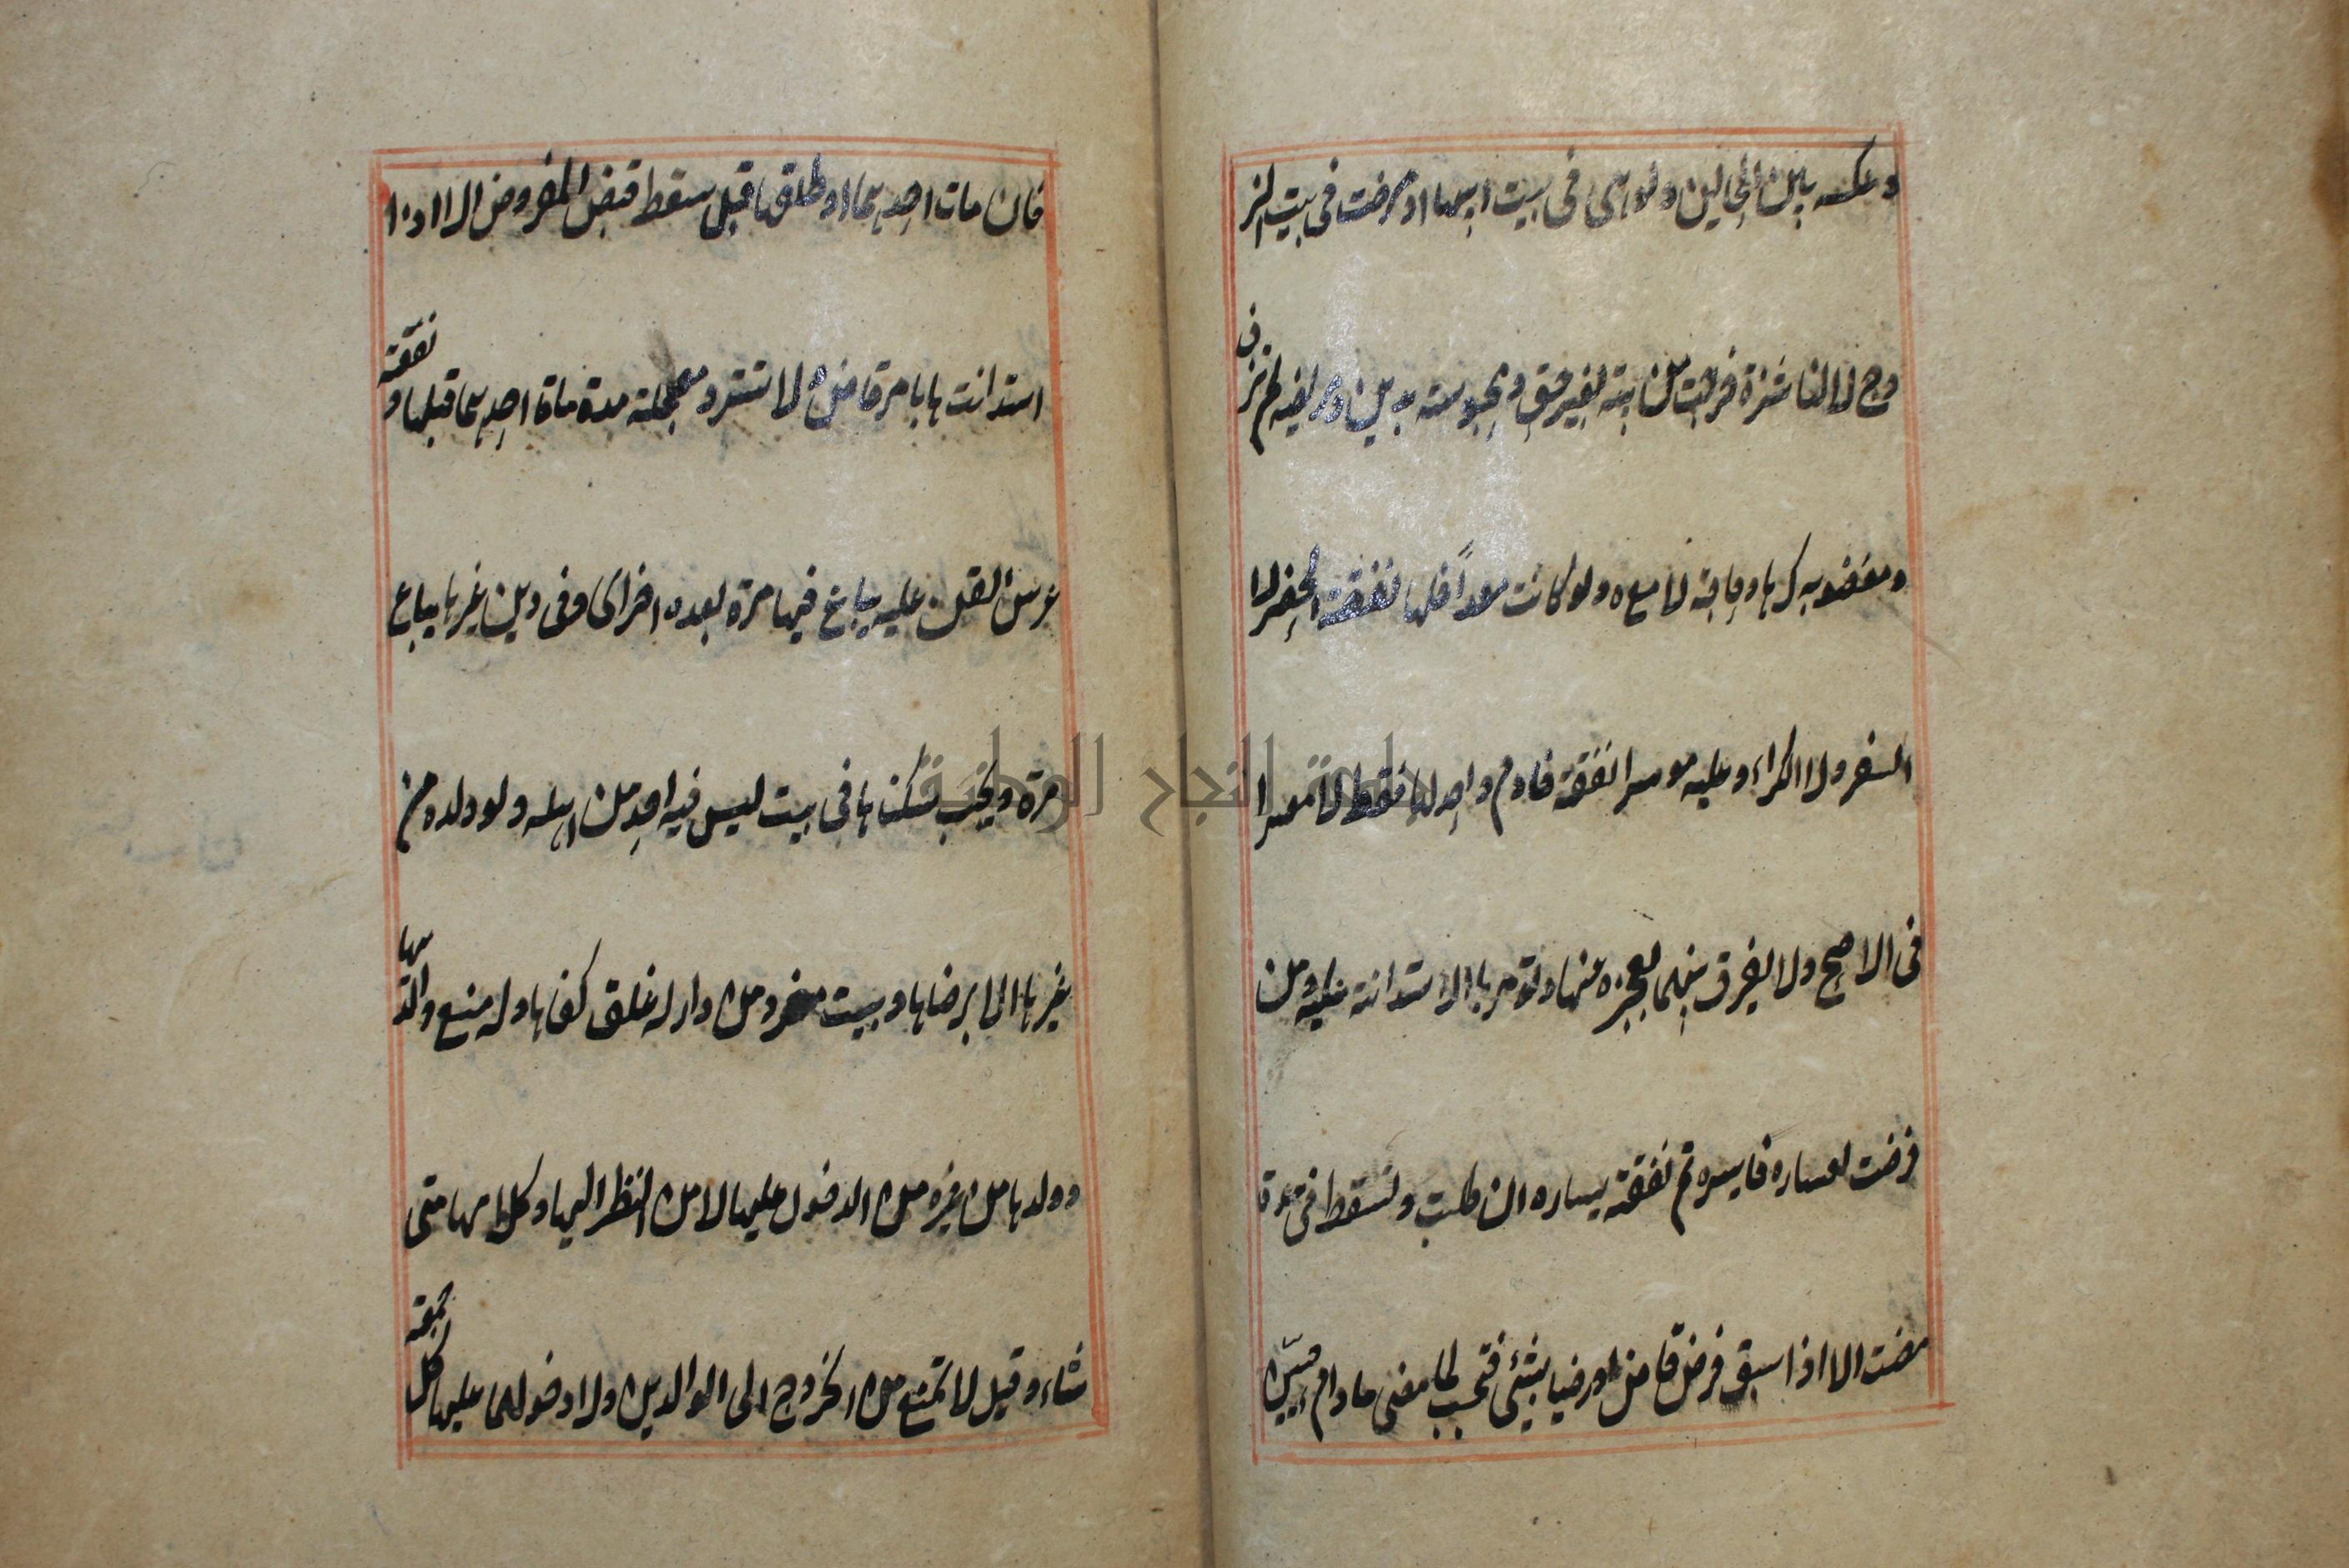 وعكسه بين الحالين ولو هى فى بيت ابيها او مرضت فى بيت الز
وج لا لناشزة خرجت من بيته بغير حق ومحبوسة بدين ومريضه لم تزف
ومغضوبه كرها وحاجة لا معه ولو كانت معه فلها نفقة الحضر لا
السفر ولا الكراء وعليه موسرا نفقة خادم واحد لها فقط لا معسرا
فى الاصح ولا يفرق بينهما لعجزه عنها وتؤمر بالاستدانة عليه ومن
فرضت لعساره فايسره تم نفقة يساره ان طلبت وتسقط فى مدة
مضت الا اذا سبق فرض قاض او رضيا بشئى فتجب لما مضى ماداما حيين
فان مات احدهما او طلقها قبل سقط قبض المفروض الا اذا
استدانت بامر قاض ولا تسترد معجلة مدة مات احدهما قبلها و نفقة
عرس القن عليه يباع فيها مرة بعده اخرى وفى دين غيرها يباع
مرة ويجب سكناها فى بيت ليس فيه احد من اهله ولو ولده من
غيرها الا برضاها وبيت مفرد من دار له غلق كفاها وله منع والديها
وولدها من غيره من الدخول عليها لا من النظر اليها وكلامها متى
شاء وقيل لا تمنع من الخروج الى الوالدين ولا دخولهما عليها كل جمعة
جامعة النجاح الوطنية